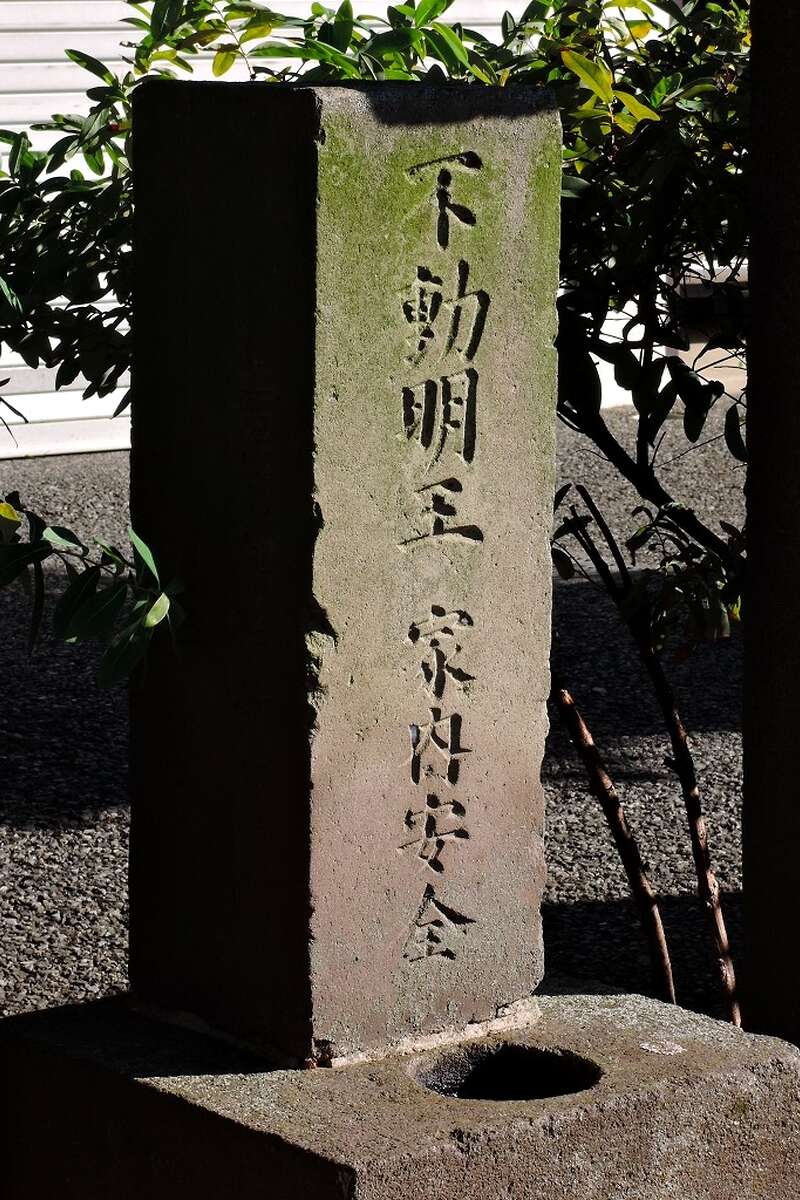 不動明王 家内安全